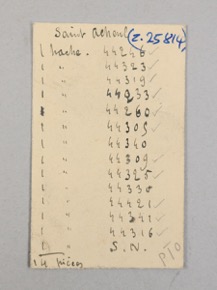 Saint Acheul (Z.25814)
1 hache. 44246
1 " 44323 ✓
1 " 44319 ✓
1 " 44233 ✓
1 " 44260 ✓
1 " 44305 ✓
1 " 44340
1 " 44309 ✓
1 " 44325 ✓
1 " 44330
1 " 44421 ✓
1 " 44341 ✓
1 " 44316 ✓
1 " S.N.
14 pièces.
PTO